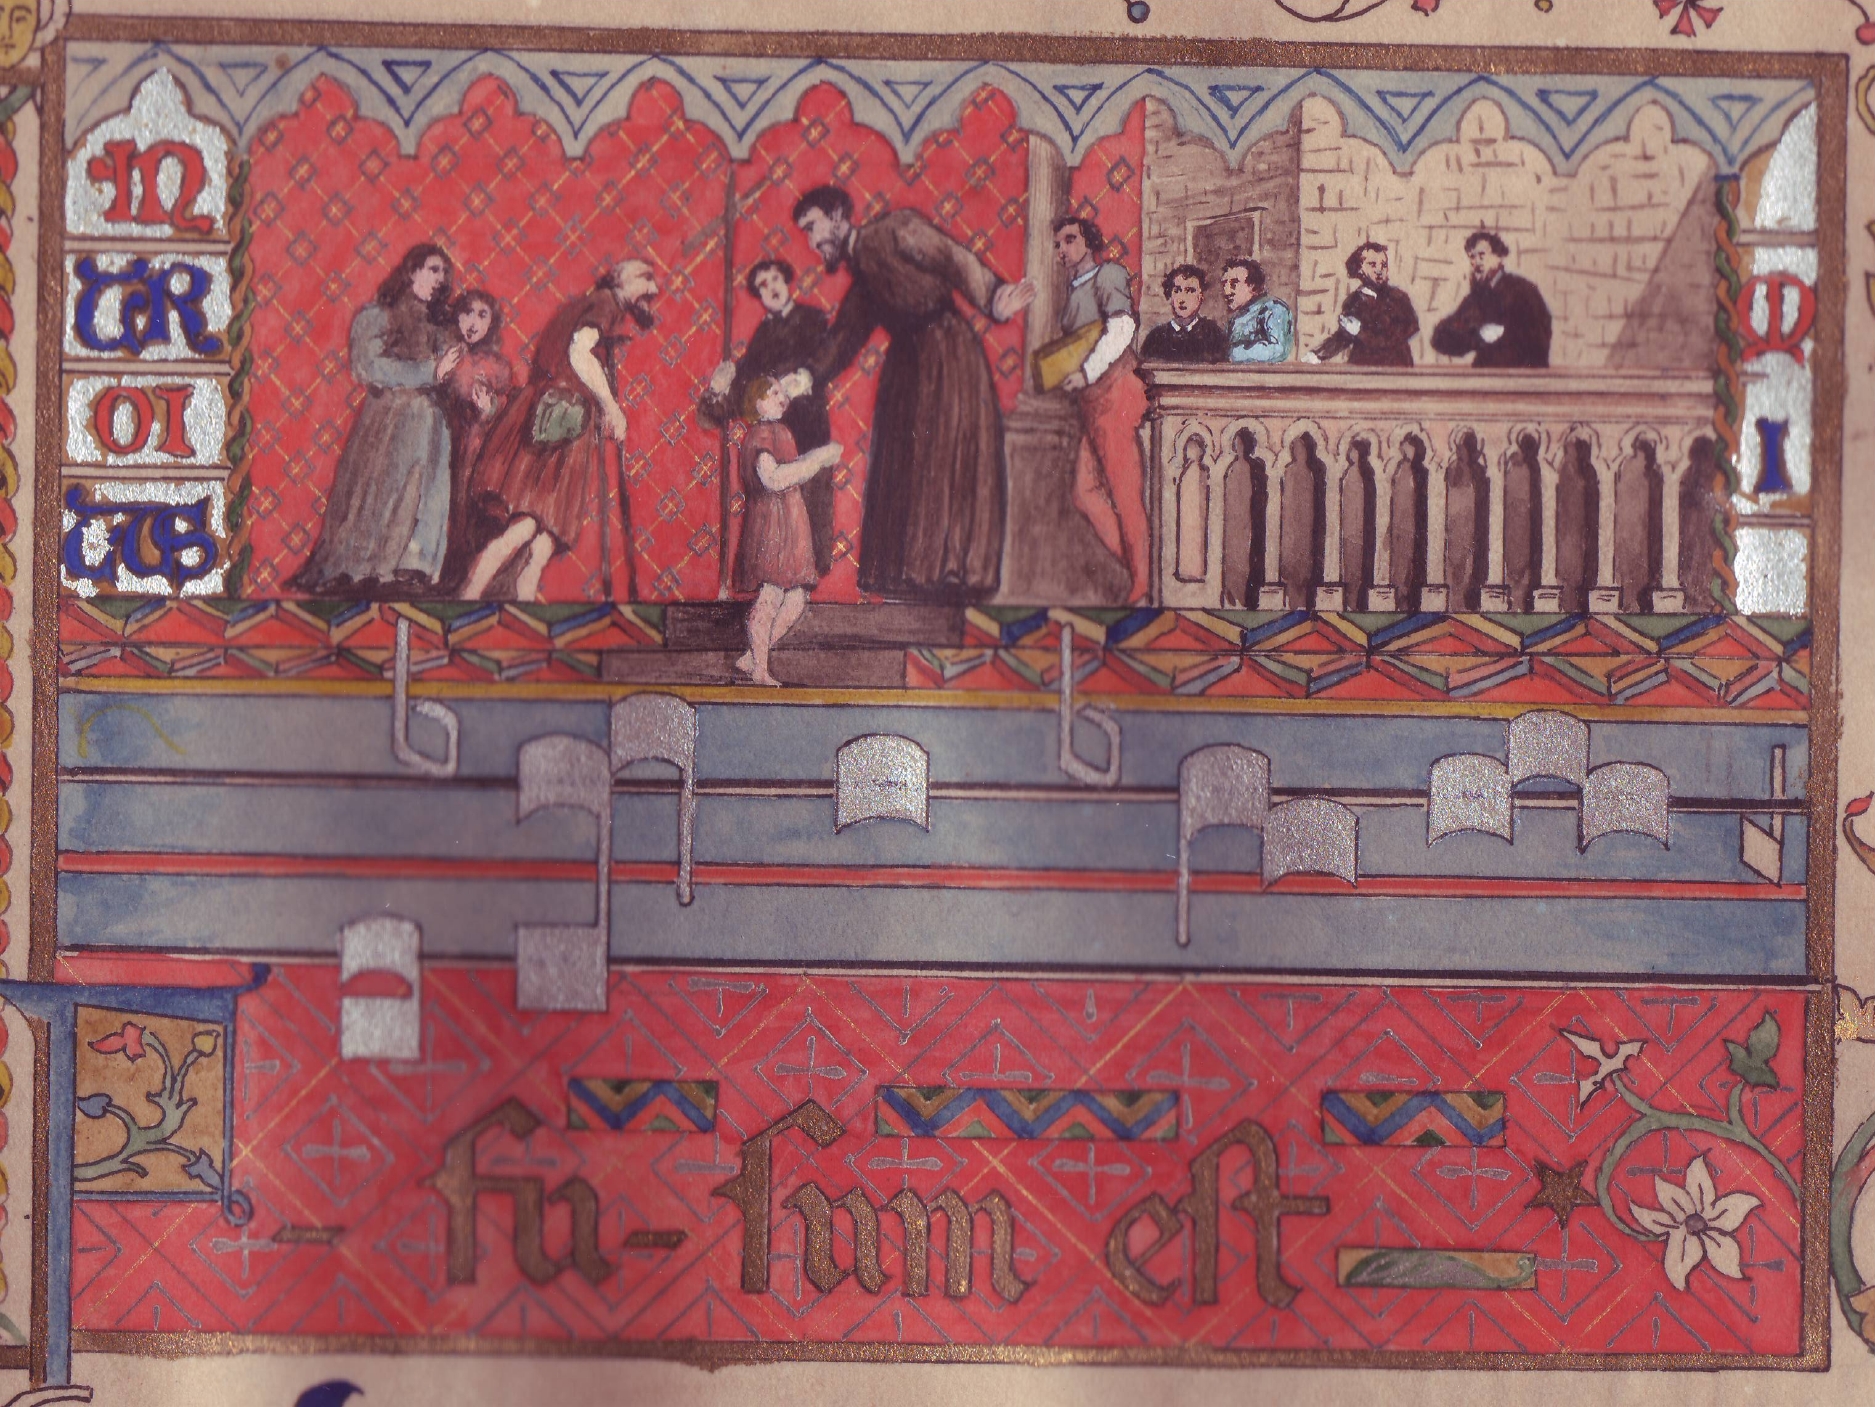 IN
TR
OI
TUS
M
I
- fu-sum est